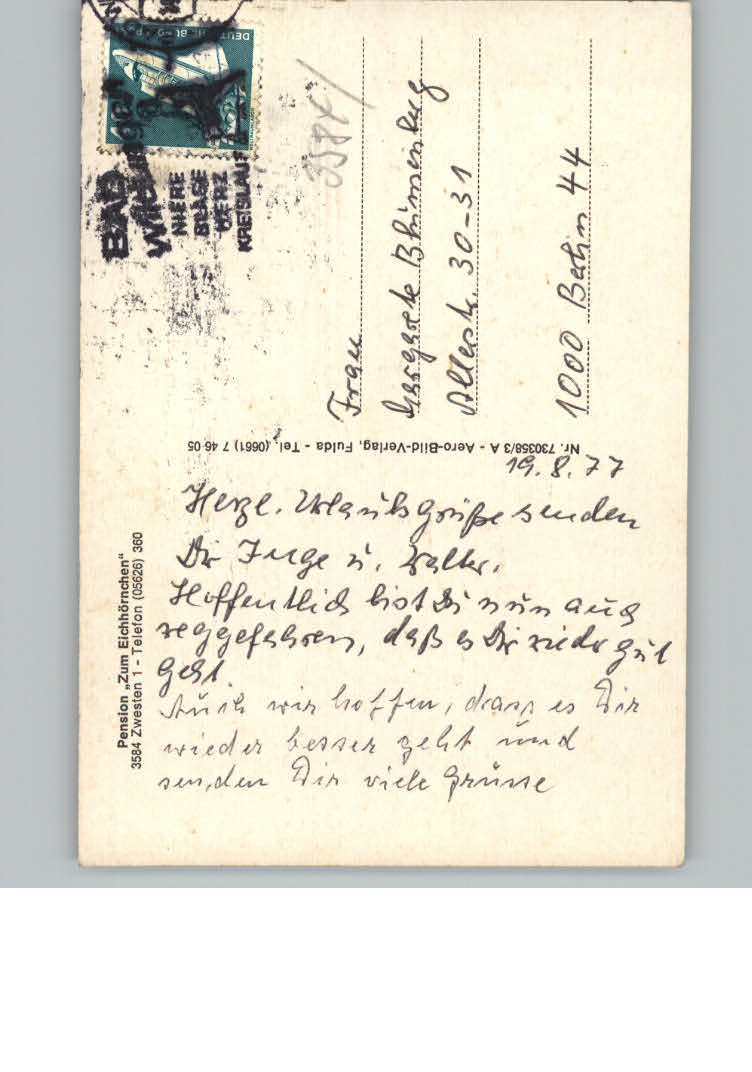 Pension „Zum Eichhörnchen“
3584 Zwesten 1 - Telefon (05626) 360
19.8.77
Herzl. Urlaubsgrüße senden
Dir Inge u. Walter.
Hoffentlich bist Du nun auch
weggefahren, daß es Dir wieder gut
geht.
Auch wir hoffen, dass es Dir
wieder besser geht und
senden Dir viele Grüsse
Nr. 730358/3 A - Aero-Bild-Verlag, Fulda - Tel. (0661) 7 46 05
BAD
NIERE
BLASE
HERZ
KREISLAUF
3584/
Frau
Margarete
Allerstr. 30-31
1000 Berlin 44